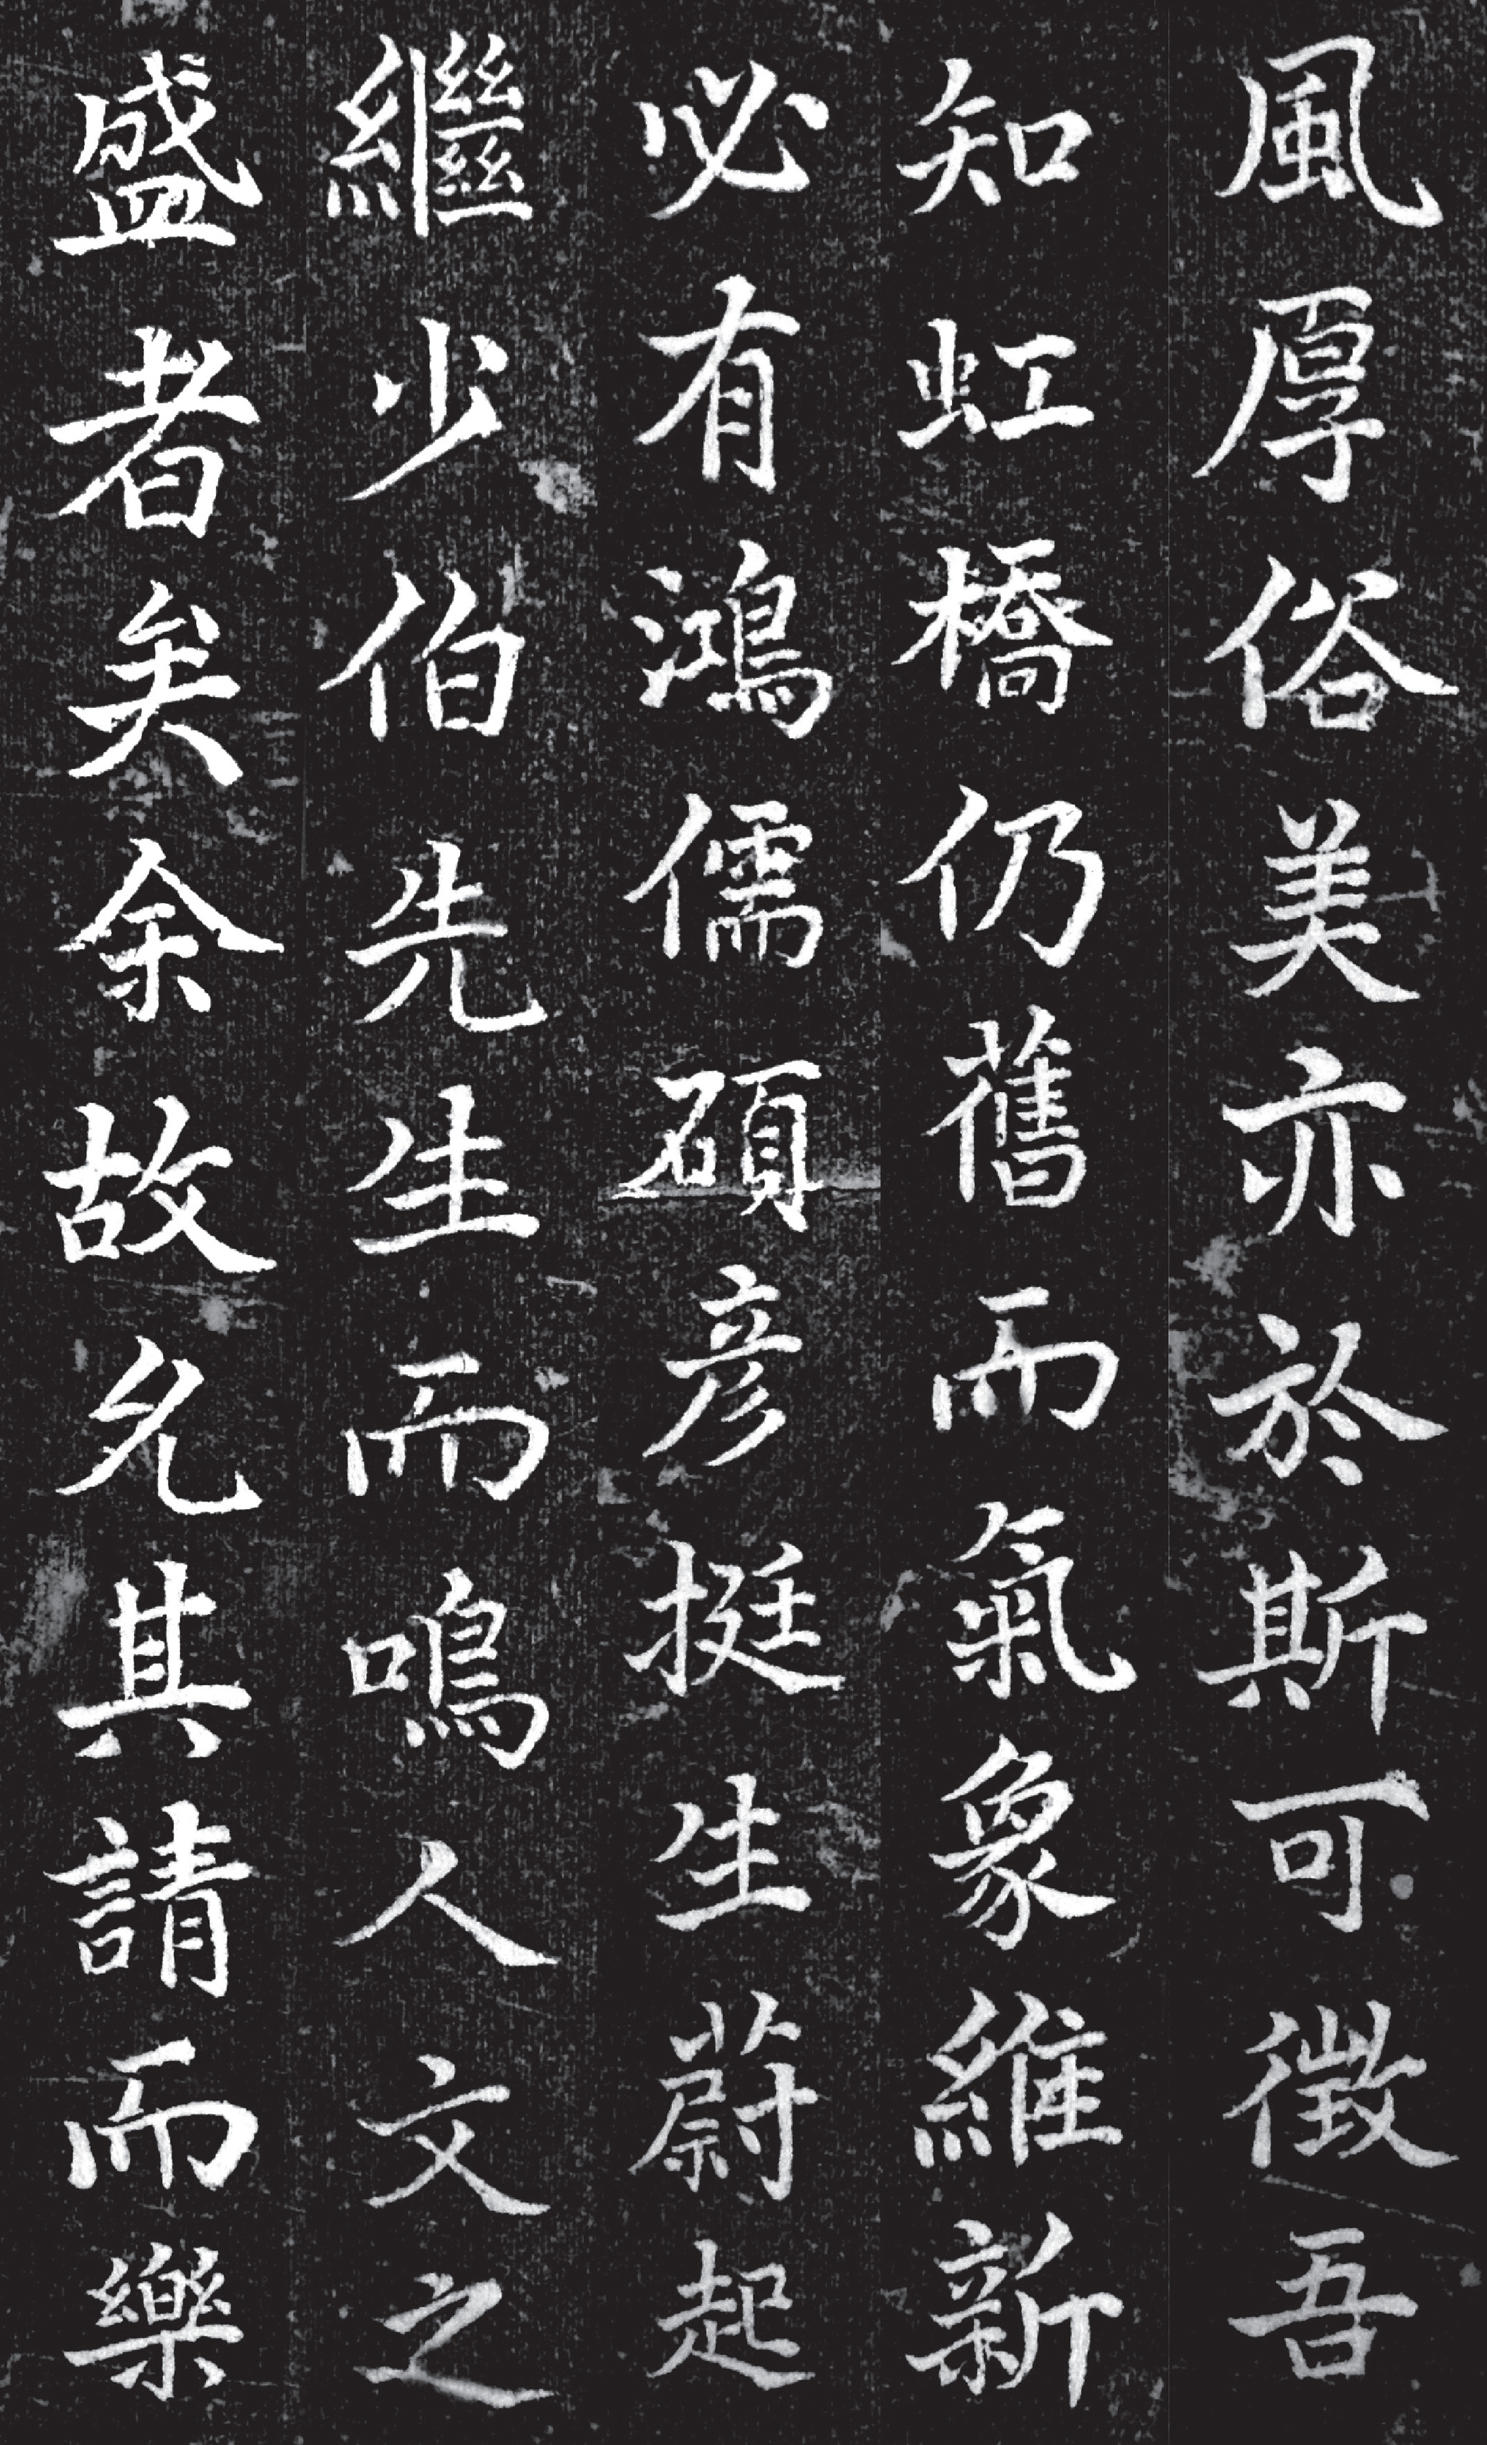 風厚俗美亦於斯可徵吾
知虹橋仍舊而氣象維新
必有鴻儒碩彥挺生蔚起
繼少伯先生而鳴人文之
盛者矣余故允其請而樂